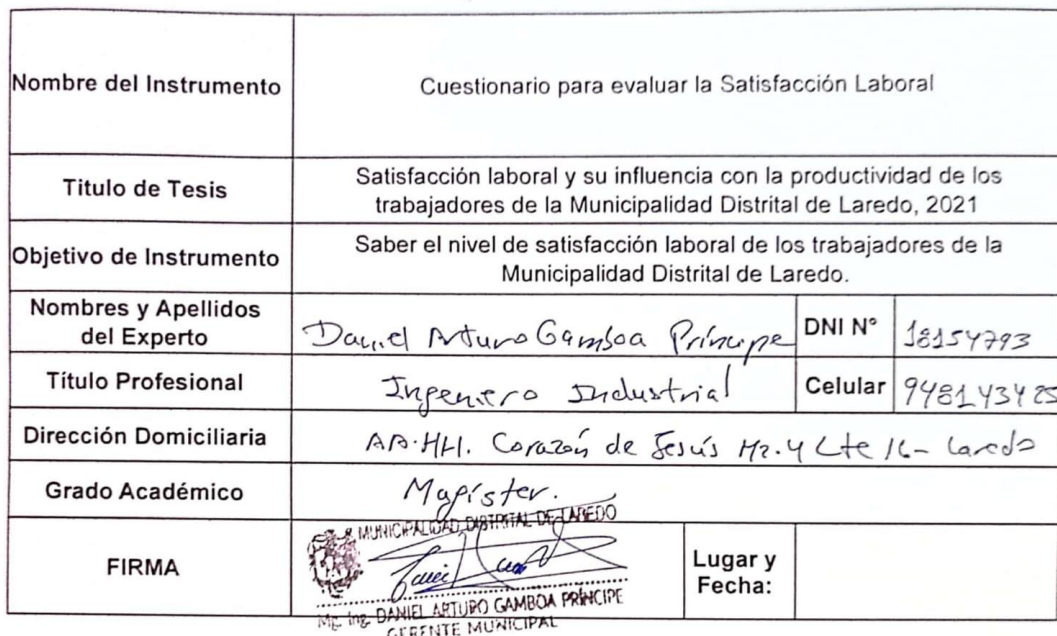 Nombre del Instrumento
Cuestionario para evaluar la Satisfacción Laboral
Titulo de Tesis
Satisfacción laboral y su influencia con la productividad de los
trabajadores de la Municipalidad Distrital de Laredo, 2021
Objetivo de Instrumento
Saber el nivel de satisfacción laboral de los trabajadores de la
Municipalidad Distrital de Laredo.
Nombres y Apellidos
del Experto
Daniel Arturo Gamboa Príncipe
DNI N°
18154793
Título Profesional
Ingeniero Industrial
Celular
948143425
Dirección Domiciliaria
AA.HH. Corazón de Jesús Mz. 4 Lte 16 - Laredo
Grado Académico
Magíster.
FIRMA
MUNICIPALIDAD DISTRITAL DE LAREDO
Mg. Ing. DANIEL ARTURO GAMBOA PRÍNCIPE
GERENTE MUNICIPAL
Lugar y
Fecha: